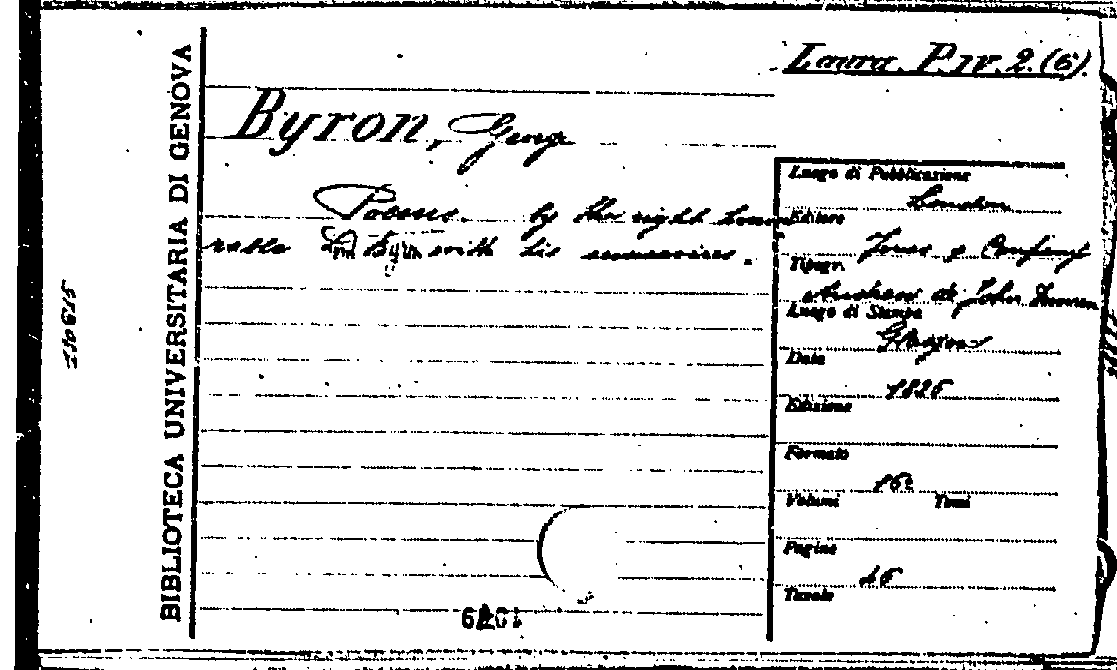 BIBLIOTECA UNIVERSITARIA DI GENOVA
Laura. P. IV. 2. (6).
Byron, George
Poems. by the right hono-
rable Ld Byron with his memories.
Luogo di Pubblicazione
London
Editore
Jones & Company
Tipogr.
John
Luogo di Stampa
Glasgow
Data
1825
Edizione
Formato
16°
Volumi Tomi
Pagine
16
Tavole